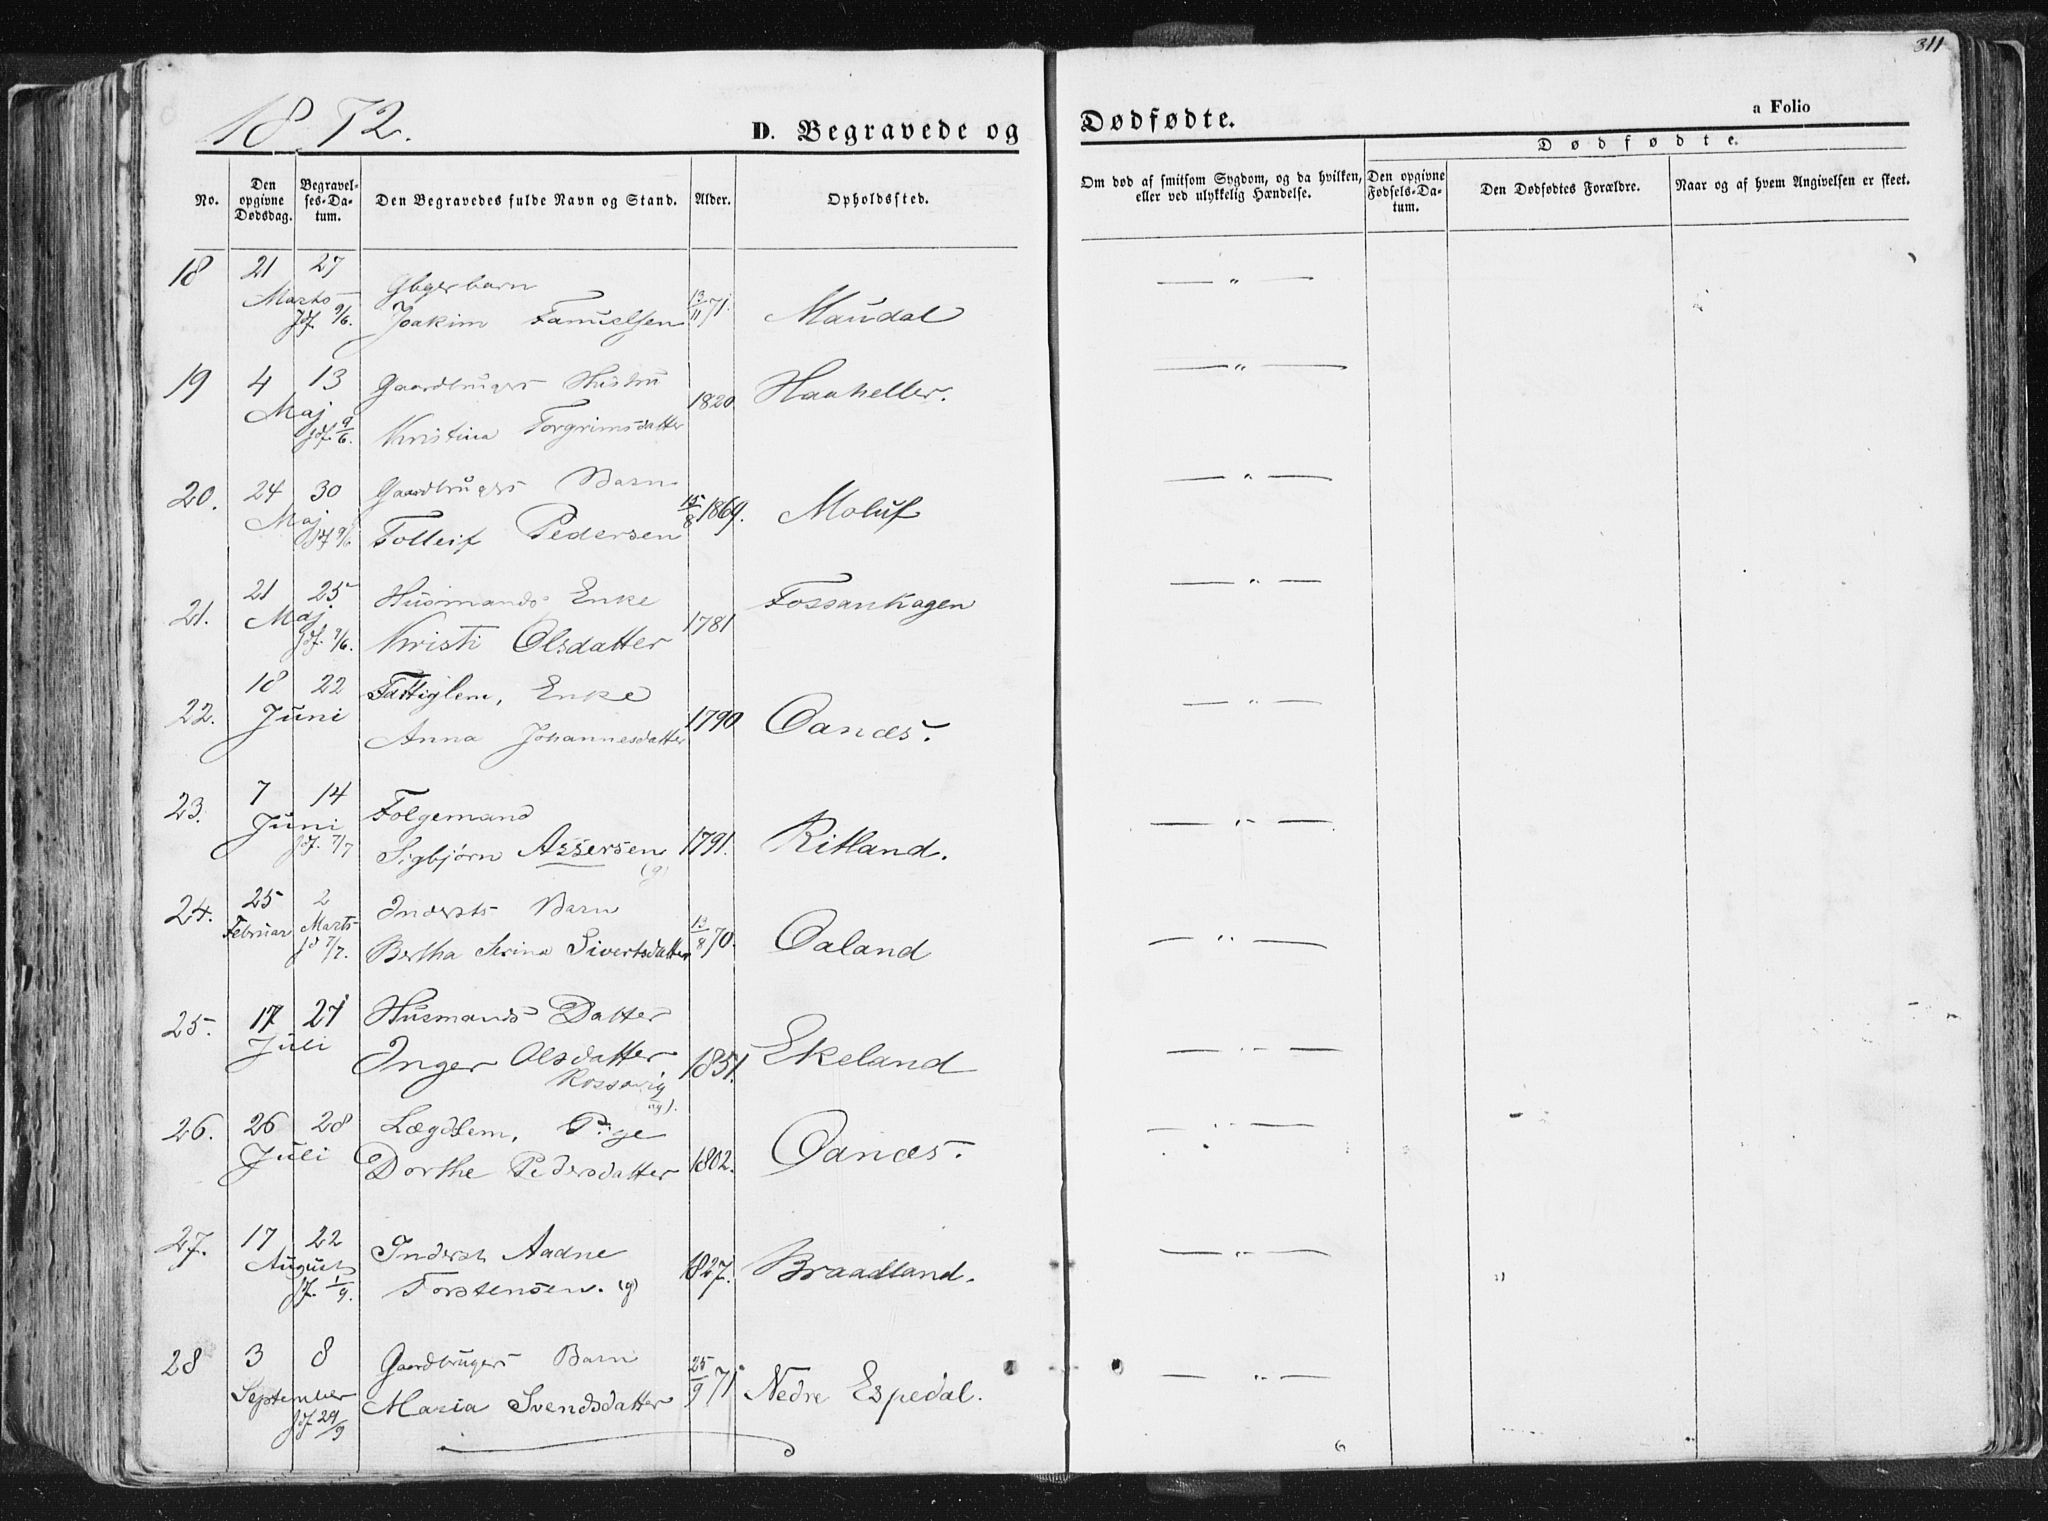 311
1872.
D. Begravede og Dødfødte.
a Folio
No.
Den opgivne Dødsdag.
Begravelses-Datum.
Den Begravedes fulde Navn og Stand.
Alder.
Opholdssted.
Om død af smitsom Sygdom, og da hvilken, eller ved ulykkelig Hændelse.
Dødfødte.
Den opgivne Fødsels-Datum.
Den Dødfødtes Forældre.
Naar og af hvem Angivelsen er skeet.
18 21 27 Gbgerbarn
Marts Jdf. 9/6. Joakim Samuelsen 13/11 71. Maudal — " —
19 4 13 Gaardbrugers Hustru 1820 Haaheller. — " —
Maj Jdf. 9/6. Kristina Torgrimsdatter
20. 24 30 Gaardbrugers Barn 15/8 1869. Moluf — " —
Maj Jdf 9/6 Tolleif Pedersen
21. 21 25 Husmands Enke 1781 Fossankagen — " —
Maj Jdf. 9/6. Kristi Olsdatter
22. 18 22 Fattiglem, Enke 1790 Oanæs. — " —
Juni Anna Johannesdatter
23. 7 14 Folgemand
Juni Jdf. 7/7 Sigbjørn Assersen (g) 1791. Ritland. — " —
24. 25 2 Indersts Barn 13/8 70. Oaland — " —
Februar Marts Jd 7/7. Bertha Serina Sivertsdatter
25. 17 27 Husmands Datter
Juli Inger Olsdatter 1851. Ekeland — " —
Rossavig
(ug).
26. 26 28 Lægdslem, Pige
Juli Dorthe Pedersdatter 1802. Oanæs. — " —
27. 17 22 Inderst Aadne 1827. Braadland. — " —
August Jf. 1/9. Torstensen. (g)
28 3 8 Gaardbrugers Barn 25/9 71 Nedre Espedal. — " —
September Jdf 29/9 Maria Svendsdatter